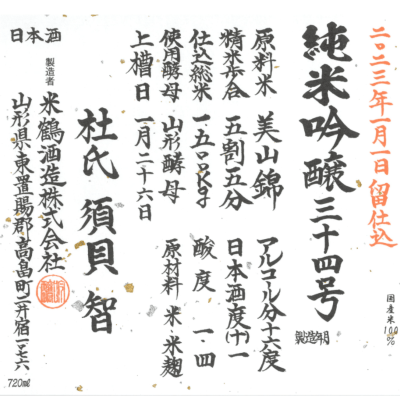 二〇二三年一月一日留仕込
純米吟醸三十四号
製造年月
国産米100%
原料米 美山錦 アルコール分十六度
精米歩合 五割五分 日本酒度(十)一
仕込総米 一五〇〇キロ 酸度 一・四
使用酵母 山形酵母 原材料 米・米麹
上槽日 一月二十六日
杜氏 須貝 智
製造者 米鶴酒造株式会社
山形県東置賜郡高畠町二井宿一一七六
日本酒
720ml